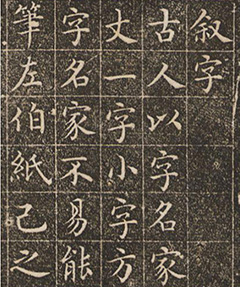 叙字
古人以字名家
丈一字小字方
字名家不易能
筆左伯紙己之